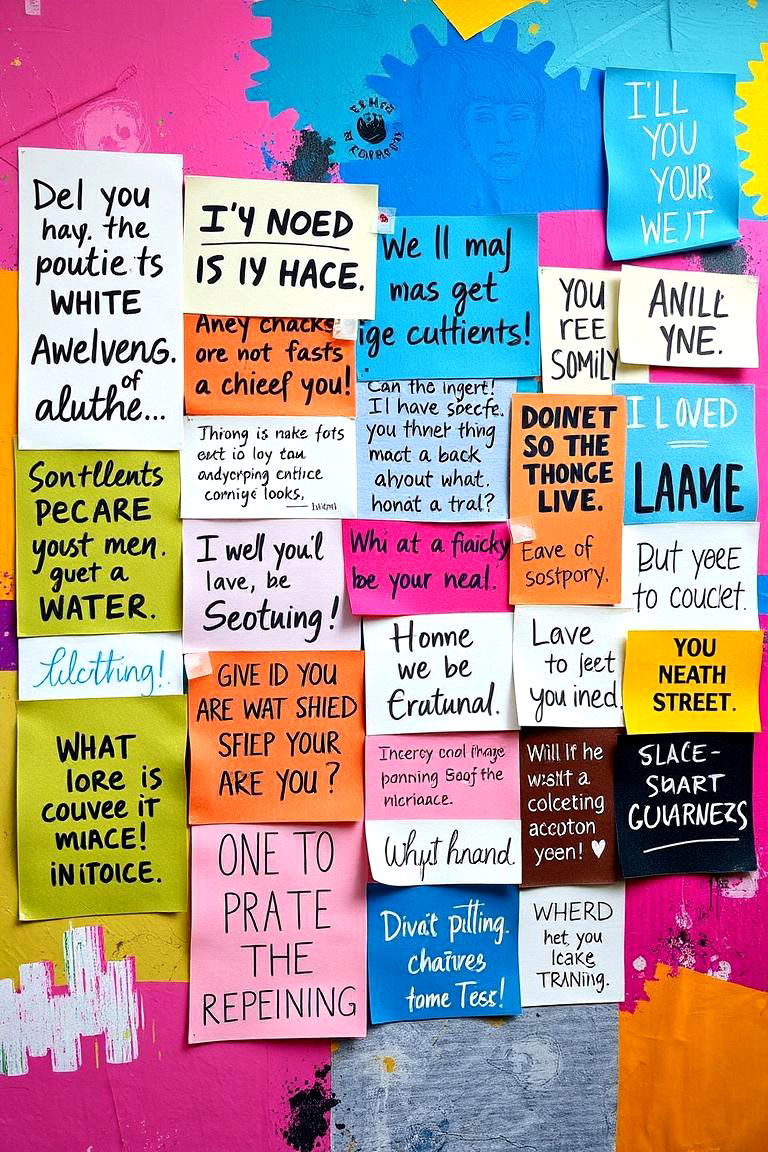 I'LL
YOU
YOUR
WEIT
Del you
hay. the
poutie ts
WHITE
Awelveng.
of
aluthe...
I'Y NOED
IS IY HACE.
We ll maj
mas get
ige cuttients!
YOU
rEE
SOMILY
ANILL
YNE.
Aney chacks
ore not fasts
a chieef you!
Can the ingert!
I I have specfe.
you thner thing
mact a back
ahyout what.
honat a tral?
DOINET
SO THE
THONCE
LIVE.
Eave of
sostpory.
I LOVED
LAAME
Throng is nake fots
eat io loy tau
andycrping entice
cornige looks,
Sontllents
PECARE
youst men.
guet a
WATER.
I well you'l
lave, be
Seotuing!
Whi at a fiaicky
be your neal.
But yoee
to couclet.
Honne
we be
Eratunal.
Lave
to jeet
you ined.
YOU
NEATH
STREET.
Lilcthing!
GIVE ID YOU
ARE WAT SHIED
SFIEP YOUR
ARE YOU?
WHAT
lore is
couvee it
MIACE!
INITOICE.
Incercy cool ihage
ponning Soof the
nicriance.
Will If he
waslt a
colceting
accoton
yeen! ♥
SLACE-
SHART
GUARNEZS
Whyit hnand.
ONE TO
PRATE
THE
REPEINING
Divat pilling.
chatives
tome Tess!
WHERD
het, you
lcake
TRANing.